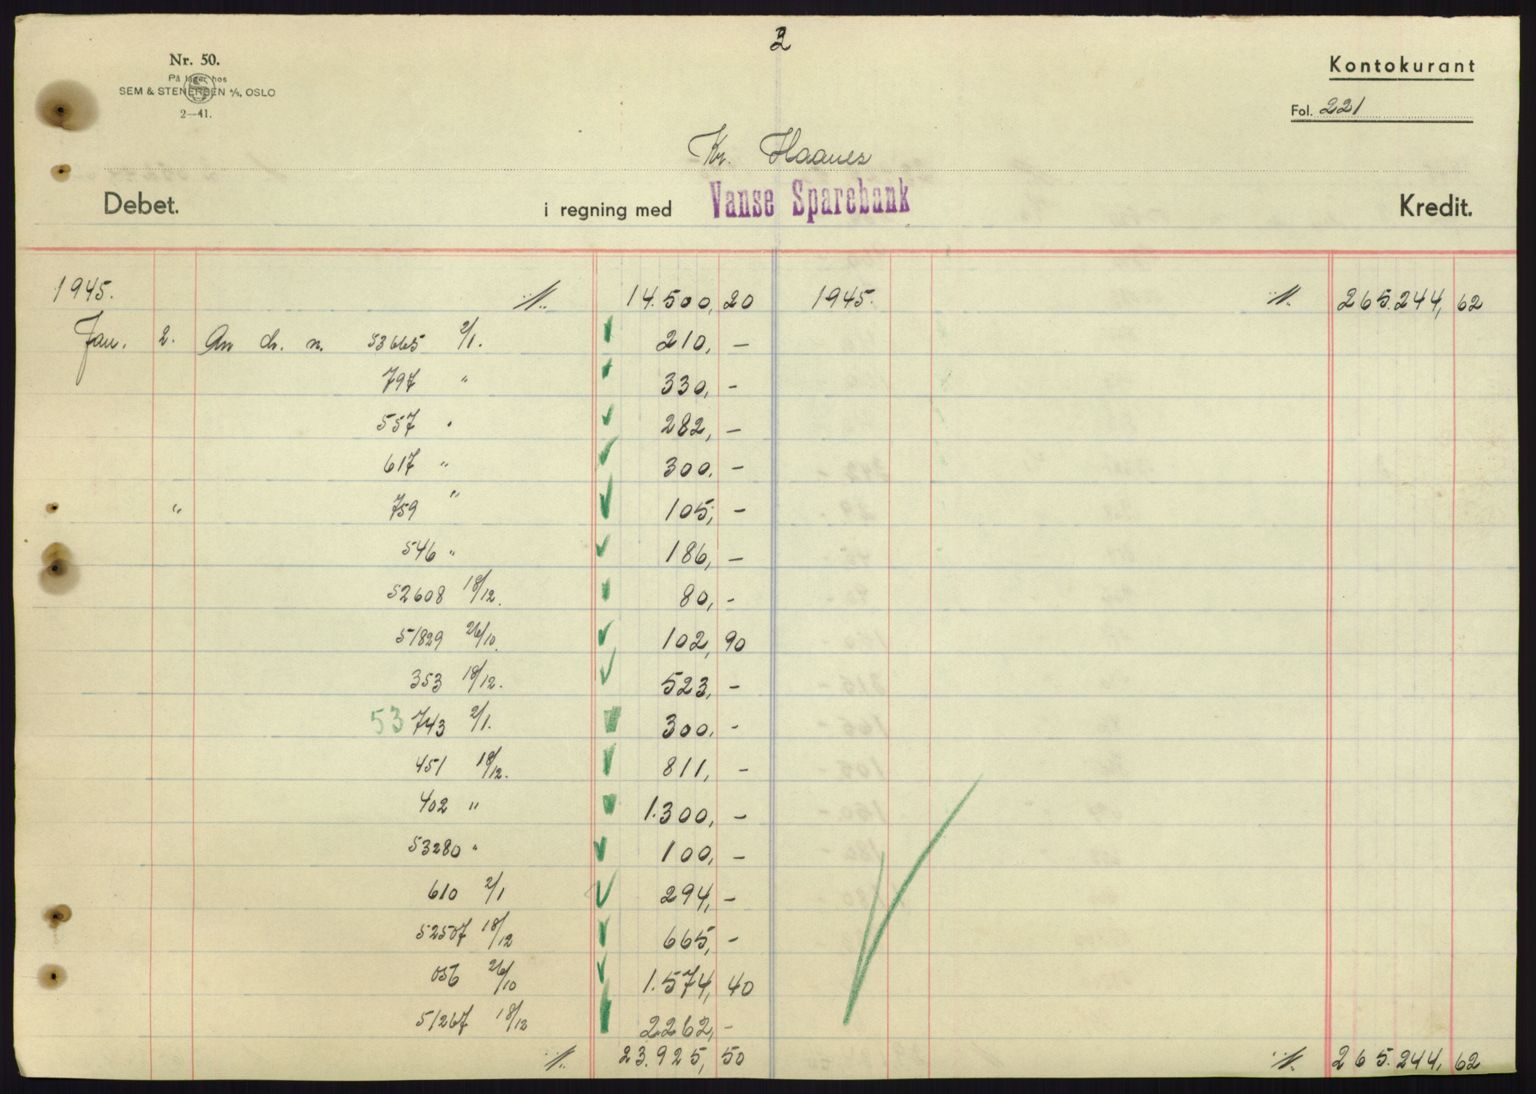 2
Nr. 50.
På lager hos
SEM & STENERSEN A/S, OSLO
2—41.
Kontokurant
Fol. 221
Kr. Haanes
Debet. i regning med Vanse Sparebank Kredit.
1945. 14.500,20 1945. 265.244,62
Jan. 2. An ch. n. 53665 2/1. 210,—
797 " 330,-
557 " 282,—
617 " 300,-
" 759 " 105,-
546 " 186,—
52608 18/12. 80,-
51829 26/10. 102,90
353 18/12. 523,-
53 743 2/1. 300,-
451 18/12. 811,-
402 " 1.300,—
53280 " 100,—
610 2/1 294,-
52507 18/12 665,-
056 26/10 1.574,40
51267 18/12 2262,-
23.925,50 265.244,62